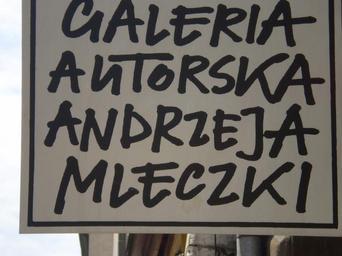 GALERIA
AUTORSKA
ANDRZEJA
MLECZKI